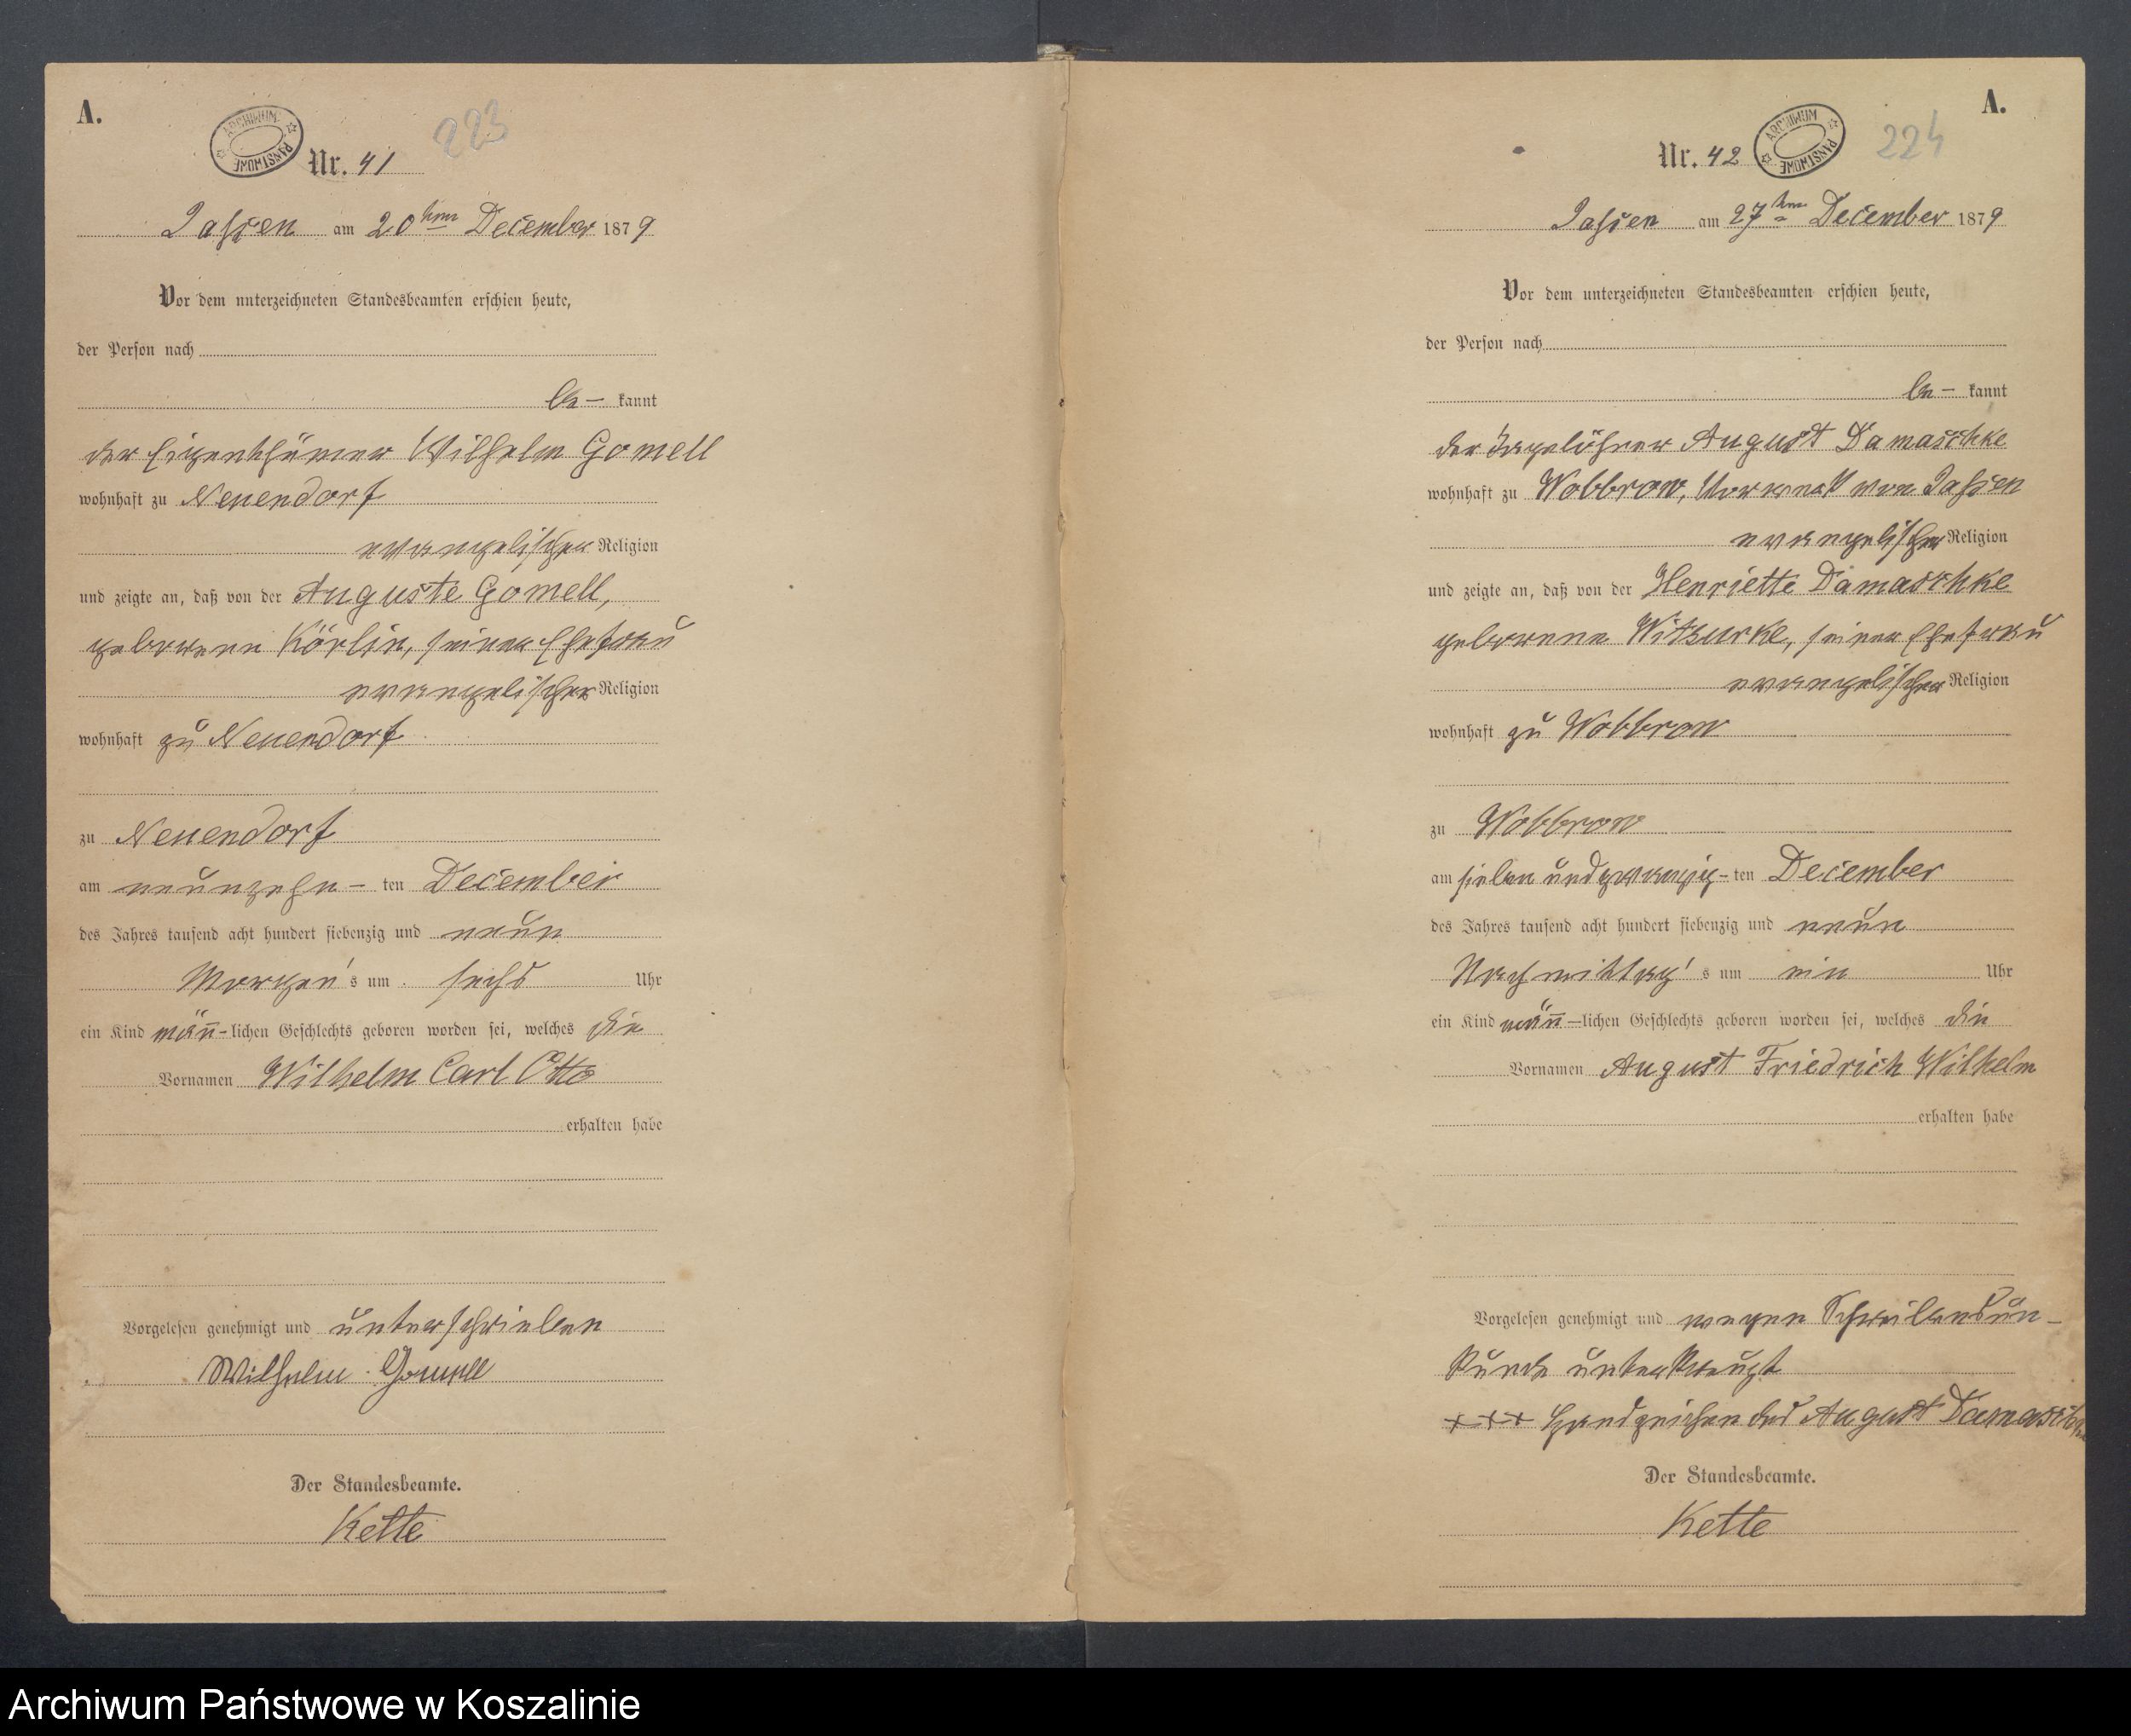 A.
ARCHIWUM PAŃSTWOWE
223
Nr. 41
Jassen am 20ten December 1879
Vor dem unterzeichneten Standesbeamten erschien heute,
der Person nach
be- kannt
der Eigenthümer Wilhelm Gomell
wohnhaft zu Neuendorf
evangelischer Religion
und zeigte an, daß von der Auguste Gomell,
geborene Körlin, seiner Ehefrau
evangelischer Religion
wohnhaft zu Neuendorf
zu Neuendorf
am neunzehn- ten December
des Jahres tausend acht hundert siebenzig und neun
Morgen's um sechs Uhr
ein Kind männ-lichen Geschlechts geboren worden sei, welches die
Vornamen Wilhelm Carl Otto
erhalten habe
Vorgelesen genehmigt und unterschrieben
Wilhelm Gomell
Der Standesbeamte.
Kette
A.
ARCHIWUM PAŃSTWOWE
224
Nr. 42
Jassen am 27ten December 1879
Vor dem unterzeichneten Standesbeamten erschien heute,
der Person nach
be- kannt
der Tagelöhner August Damaschke
wohnhaft zu Wobbrow, Vorwerk von Jassen
evangelischer Religion
und zeigte an, daß von der Henriette Damaschke
geborene Witzurke, seiner Ehefrau
evangelischer Religion
wohnhaft zu Wobbrow
zu Wobbrow
am sieben und zwanzig-ten December
des Jahres tausend acht hundert siebenzig und neun
Nachmittag's um ein Uhr
ein Kind männ-lichen Geschlechts geboren worden sei, welches die
Vornamen August Friedrich Wilhelm
erhalten habe
Vorgelesen genehmigt und wegen Schreibensun-
kunde unterkreuzt
+++ Handzeichen des August Damaschke
Der Standesbeamte.
Kette
Archiwum Państwowe w Koszalinie